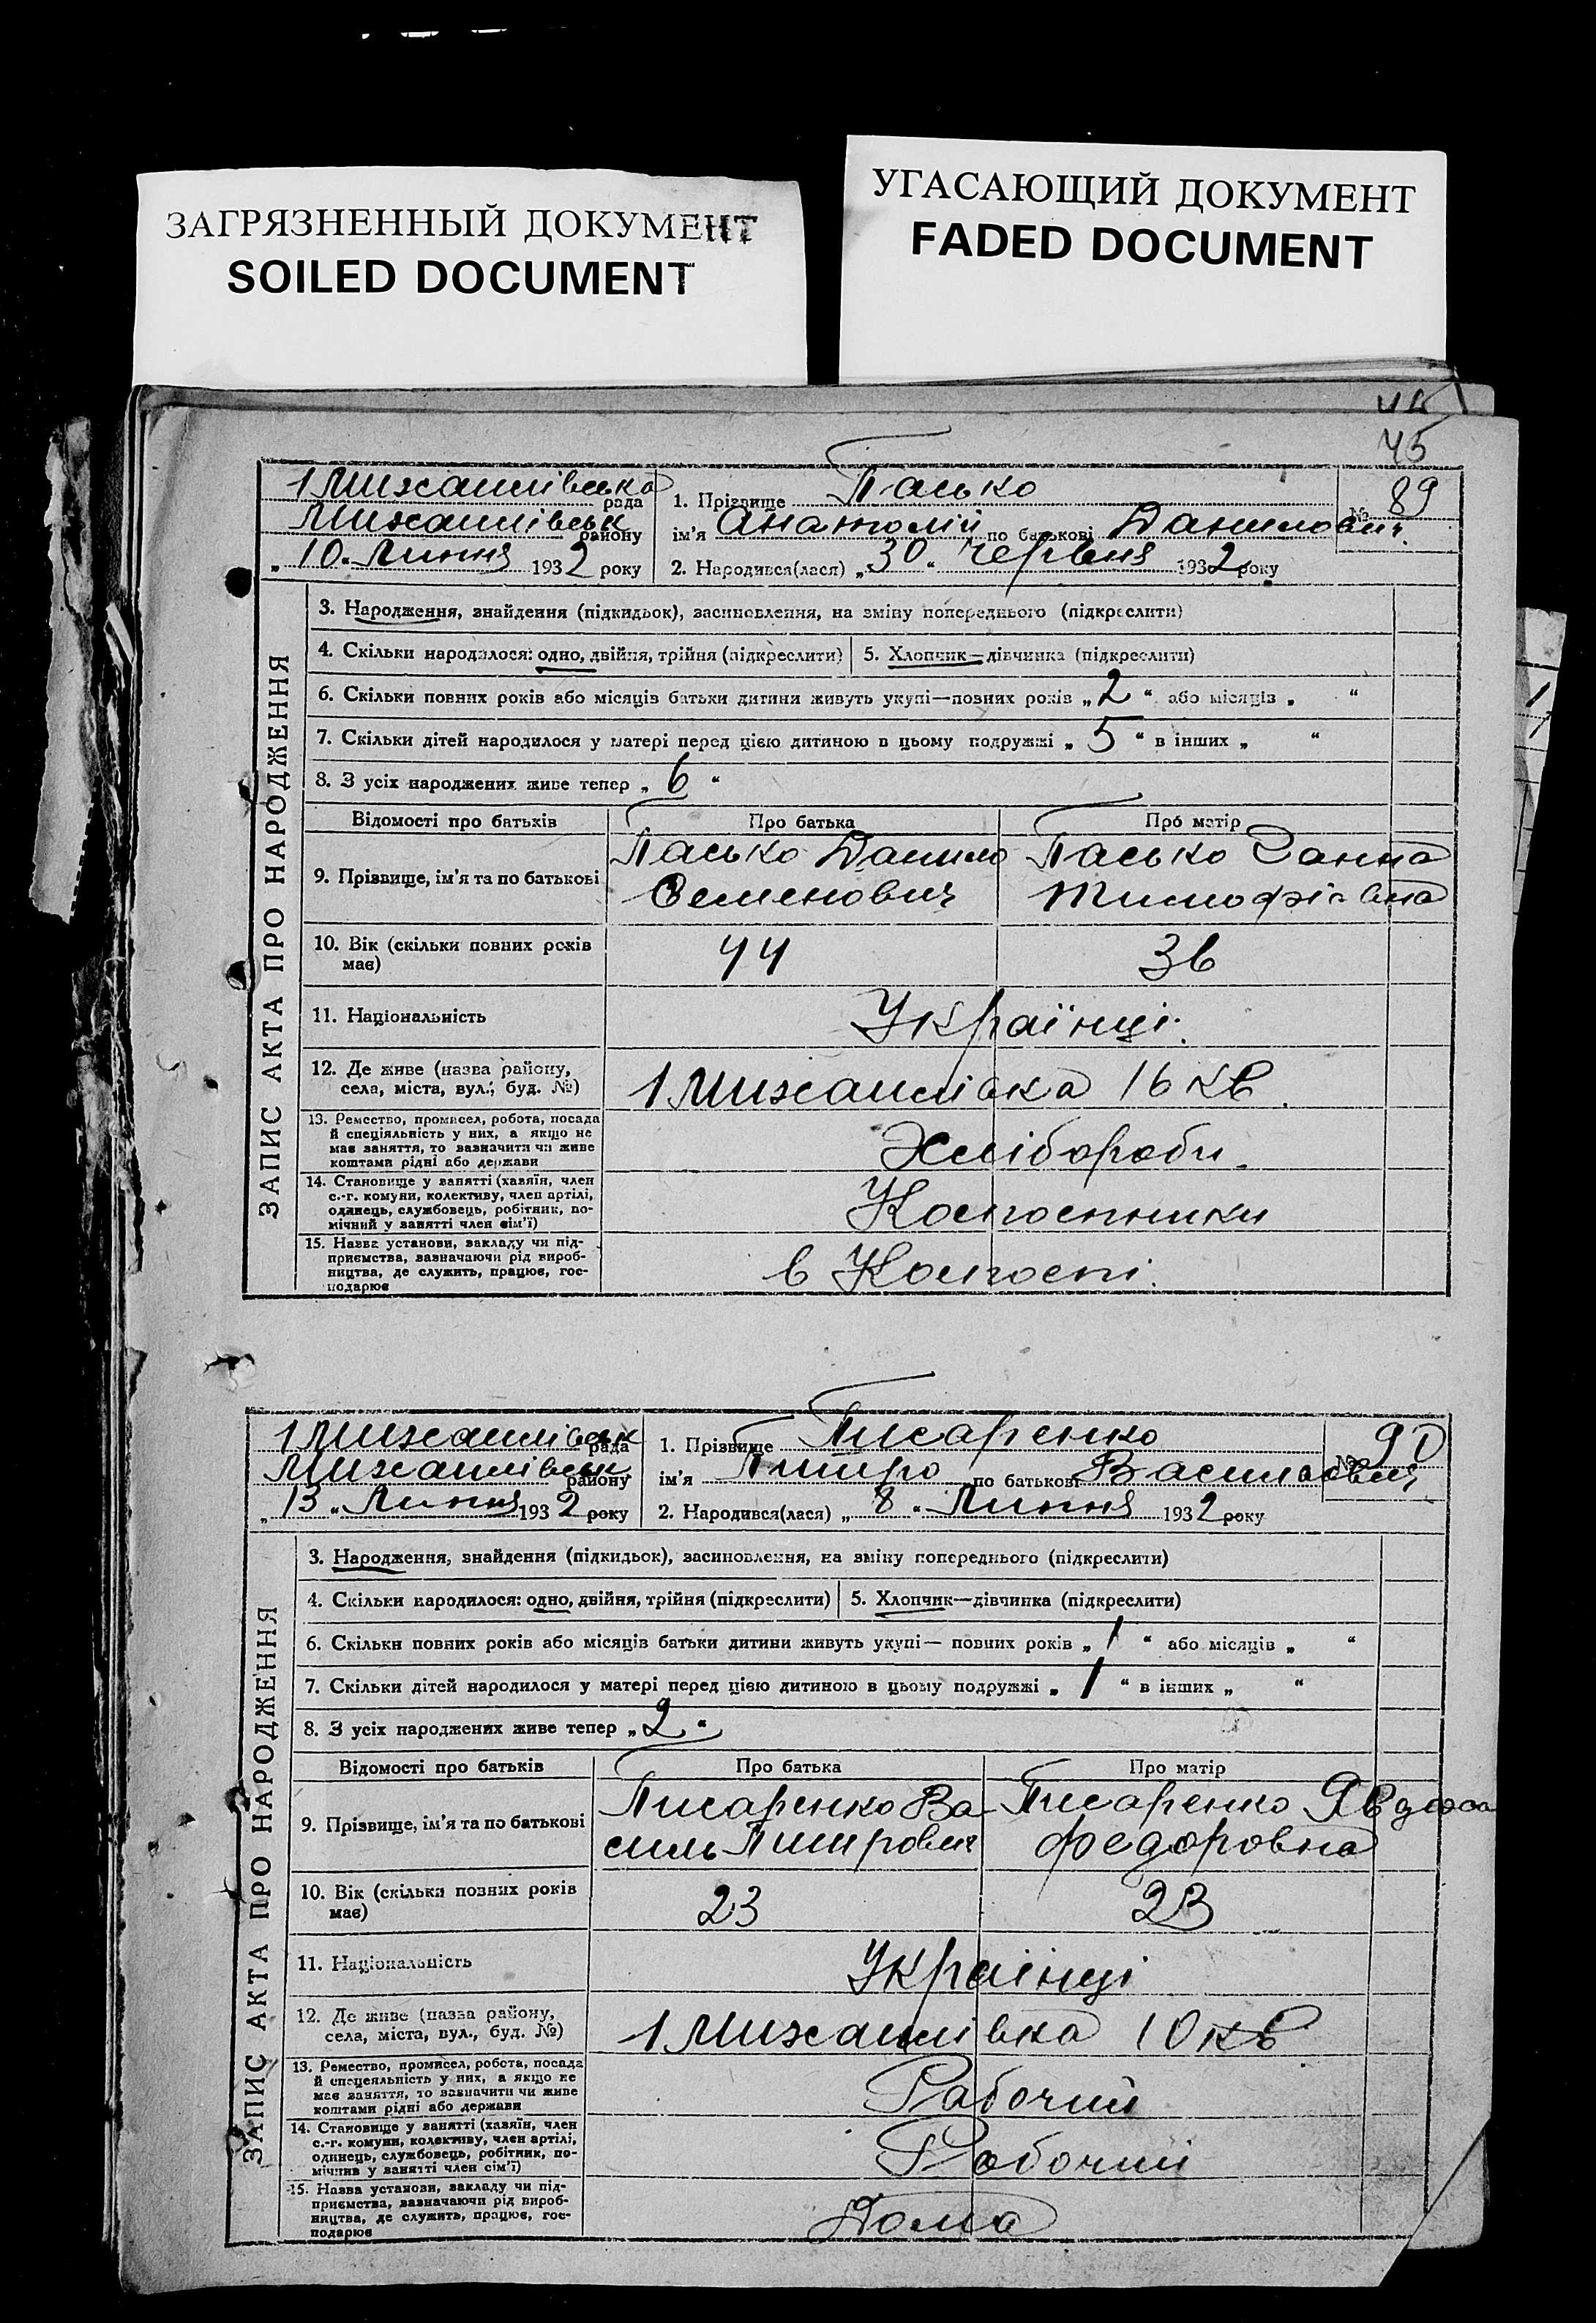 ЗАГРЯЗНЕННЫЙ ДОКУМЕНТ
SOILED DOCUMENT
УГАСАЮЩИЙ ДОКУМЕНТ
FADED DOCUMENT
45
ЗАПИС АКТА ПРО НАРОДЖЕННЯ
1 Михайлівська рада
Михайлівськ району
„10“ Липня 1932 року
№ 89
1. Прізвище Пасько
ім'я Анатолій по батькові Данилович
2. Народився(лася) „30“ червня 1932 року
3. Народження, знайдення (підкидьок), засиновлення, на зміну попереднього (підкреслити)
4. Скільки народилося: одно, двійня, трійня (підкреслити) 5. Хлопчик—дівчинка (підкреслити)
6. Скільки повних років або місяців батьки дитини живуть укупі—повних років „2“ або місяців „ “
7. Скільки дітей народилося у матері перед цією дитиною в цьому подружжі „5“ в інших „ “
8. З усіх народжених живе тепер „6“
Відомості про батьків Про батька Про матір
9. Прізвище, ім'я та по батькові Пасько Данило Пасько Ганна
Семенович Тимофіївна
10. Вік (скільки повних років 44 36
має)
11. Національність Українці.
12. Де живе (назва району,
села, міста, вул., буд. №) 1 Михайлівка 16 кв.
13. Ремество, промисел, робота, посада
й спеціяльність у них, а якщо не
має заняття, то зазначити чи живе
коштами рідні або держави
Хлібороби.
14. Становище у занятті (хазяїн, член
с.-г. комуни, колективу, член артілі,
одинець, службовець, робітник, по-
мічний у занятті член сім'ї)
Колгоспники
15. Назва установи, закладу чи під-
приємства, зазначаючи рід вироб-
ництва, де служить, працює, гос-
подарює
в Колгоспі.
ЗАПИС АКТА ПРО НАРОДЖЕННЯ
1 Михайлівськ рада
Михайлівськ району
„13“ Липня 1932 року
№ 90
1. Прізвище Писаренко
ім'я Питро по батькові Василович
2. Народився(лася) „8“ Липня 1932 року
3. Народження, знайдення (підкидьок), засиновлення, на зміну попереднього (підкреслити)
4. Скільки народилося: одно, двійня, трійня (підкреслити) 5. Хлопчик—дівчинка (підкреслити)
6. Скільки повних років або місяців батьки дитини живуть укупі— повних років „1“ або місяців „ “
7. Скільки дітей народилося у матері перед цією дитиною в цьому подружжі „1“ в інших „ “
8. З усіх народжених живе тепер „2“
Відомості про батьків Про батька Про матір
9. Прізвище, ім'я та по батькові Писаренко Ва- Писаренко Явдоха
силь Питрович Федоровна
10. Вік (скільки повних років 23 23
має)
11. Національність Українці
12. Де живе (назва району,
села, міста, вул., буд. №) 1 Михайлівка 10 кв
13. Ремество, промисел, робота, посада
й спецеяльність у них, а якщо не
має заняття, то зазначити чи живе
коштами рідні або держави
Рабочий
14. Становище у занятті (хазяїн, член
с.-г. комуни, колективу, член артілі,
одинець, службовець, робітник, по-
мічнив у занятті член сім'ї)
Робочий
15. Назва установи, закладу чи під-
приємства, зазначаючи рід вироб-
ництва, де служить, працює, гос-
подарює
Дома